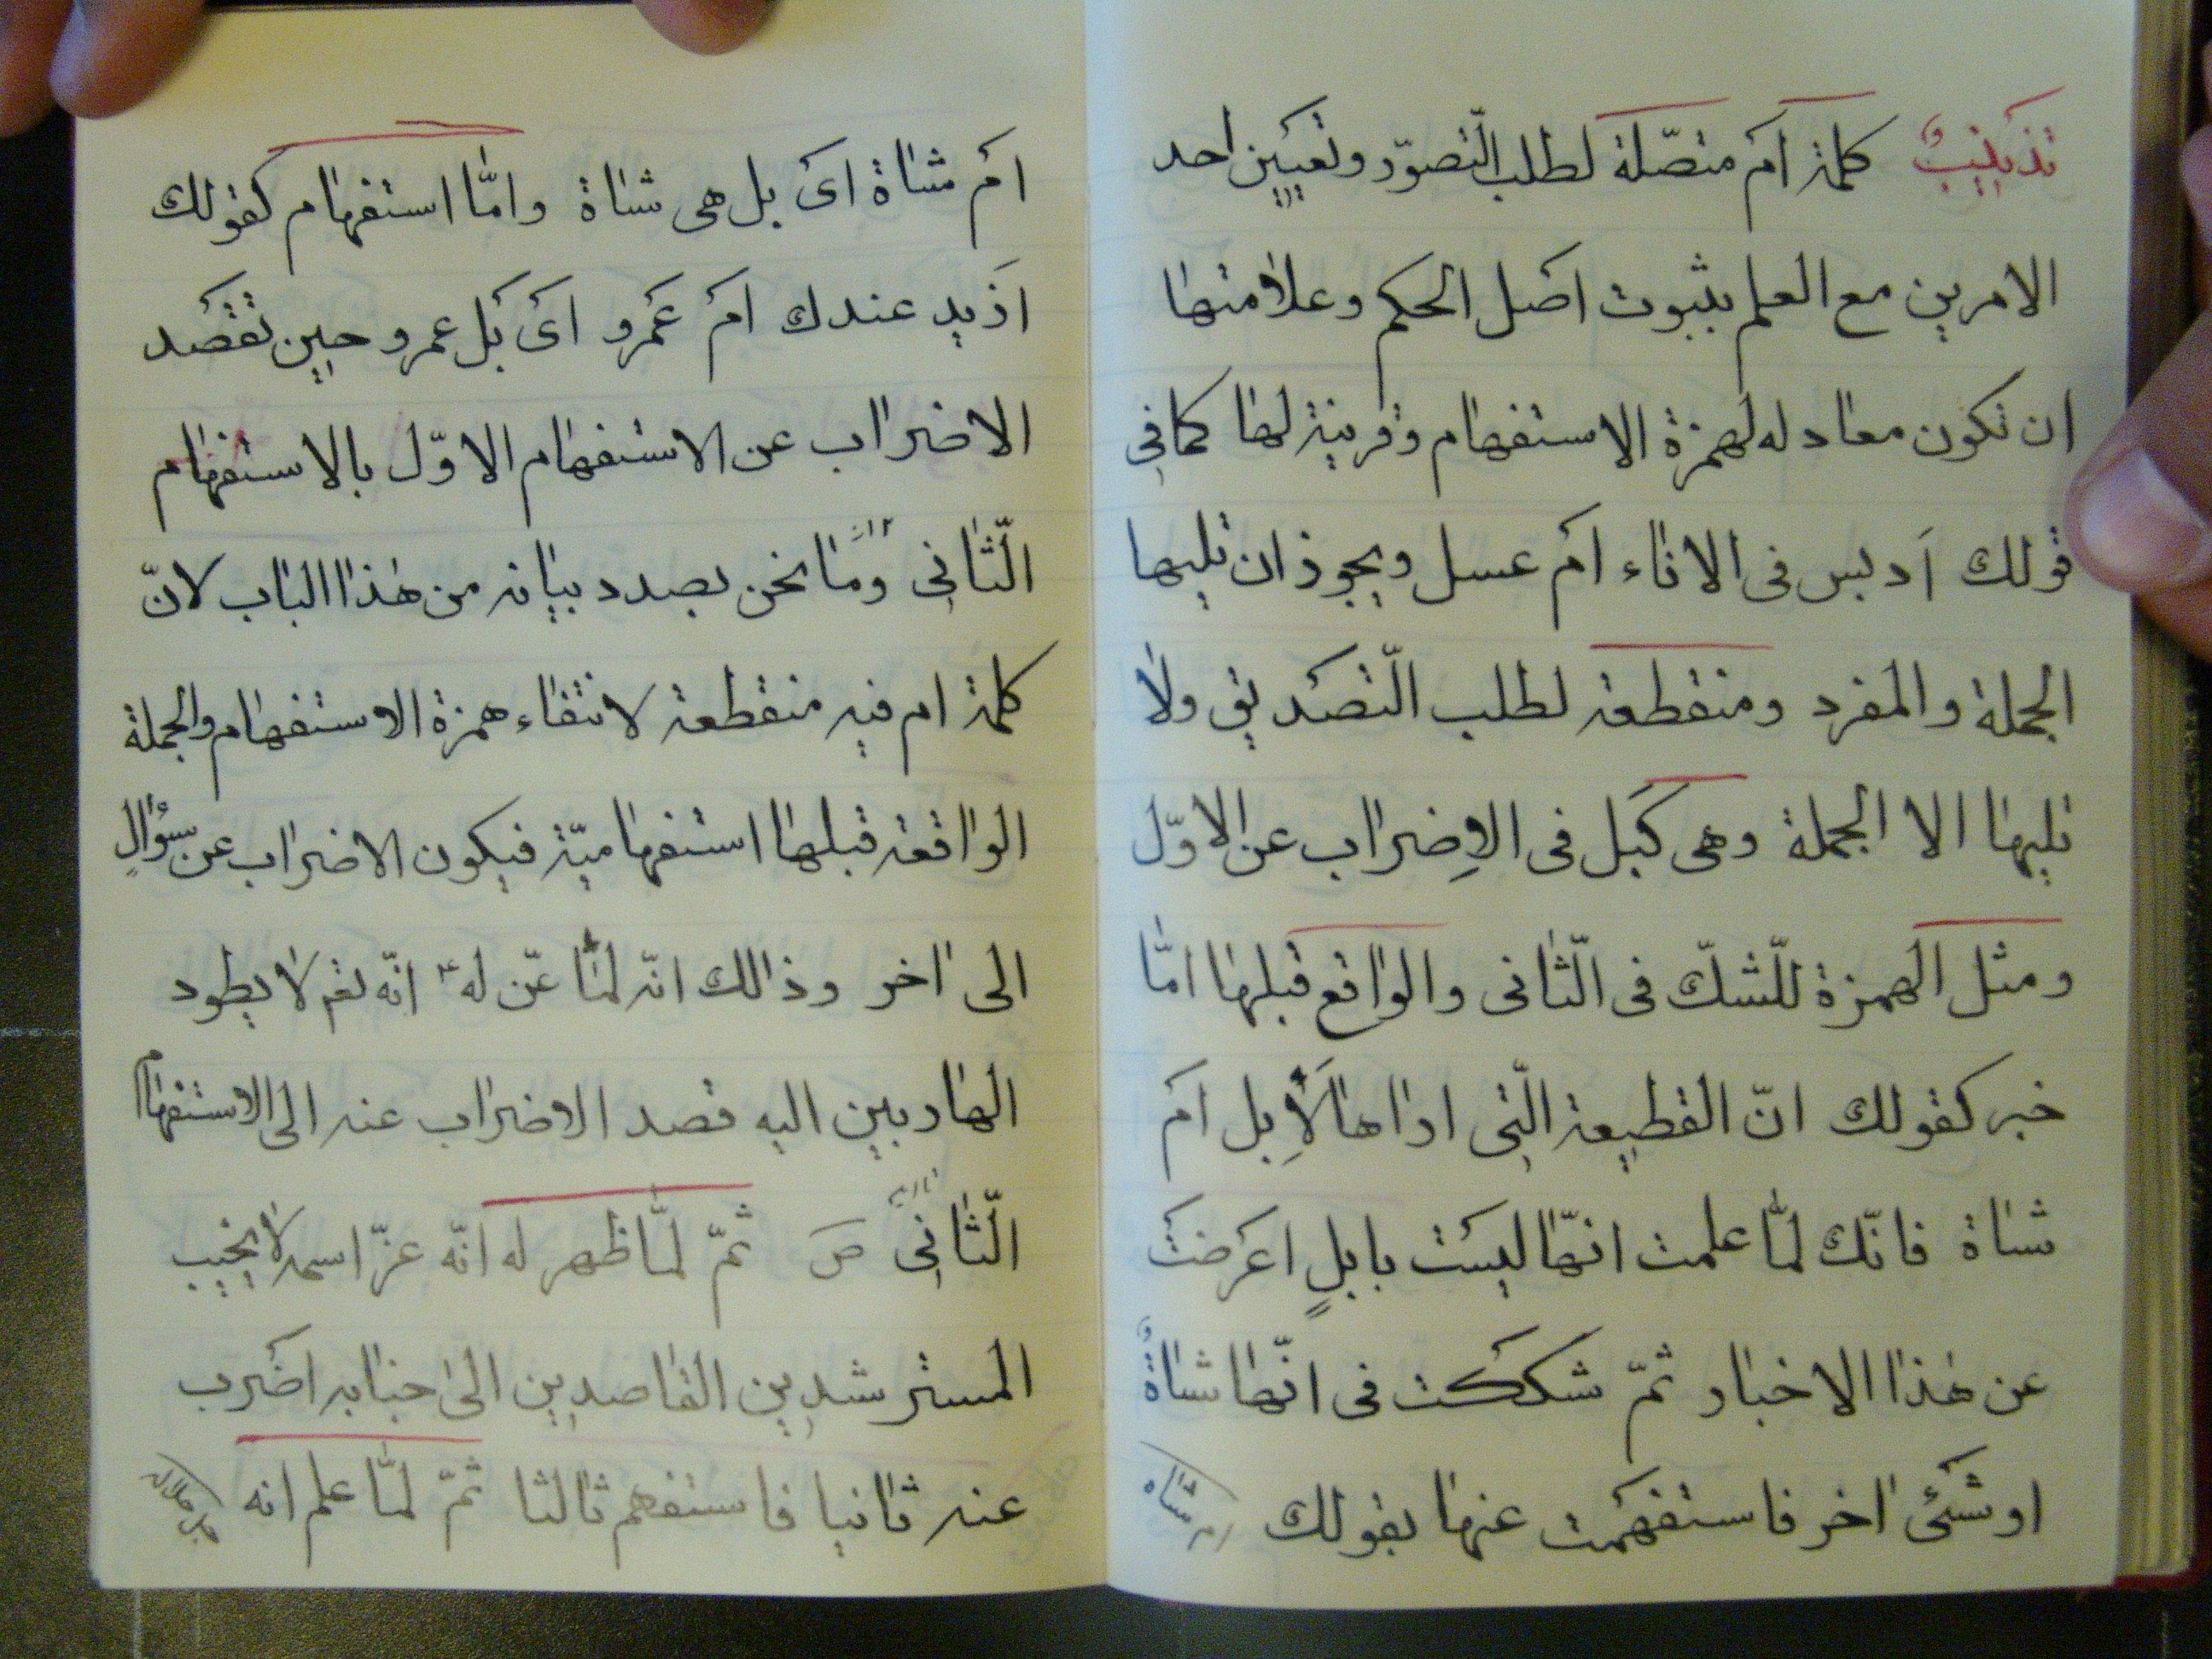 تذييلٌ كلمة امْ متصّلة لطلب التّصوّر وتعيين احد
الامرين مع العلم بثبوت اصْل الحكم وعلامتها
ان تكون معادله لهمزة الاستفهام وقرينة لها كما فى
قولك اَدبس فى الاناء امْ عسل ويجوز ان تليها
الجملة والمفرد ومنقطعة لطلب التّصْديق ولا
تليها الا الجملة وهى كبَل فى الاِضراب عن الاوّل
ومثل الهمزة للّشكّ فى الثّانى والواقع قبلها امّا
خبر كقولك انّ القطيعة الّتى اراها لَاِبل امْ
شاة فانّك لمّا علمت انّها ليسَت بابلٍ اعرضْتَ
عن هٰذا الاخبار ثمّ شككْت فى انّها شاةٌ
او شَئ اٰخر فاستفهَمْت عنها بقولك
ام شاة
امْ شاة اىْ بل هى شاة وامّا استفهام كقولك
ازَيد عندك امْ عمَرو اىْ بَل عمرو حين تقصْد
الاضراب عن الاستفهام الاوّل بالاستفهام
الثّانى وما نحن بصدد بيانه من هٰذا الباب لانّ
كلمة ام فيه منقطعة لانتفاء همزة الاستفهام والجملة
الواقعة قبلها استفهاميّة فيكون الاضراب عن سؤالٍ
الى اٰخر وذالك انّه لمّا عنّ له انّه نعم لا يطرد
الهاربين اليه قصد الاضراب عنه الى الاستفهام
الثّانى صَ ثمّ لمّا ظهر له انّه عزّ اسمه لا يخيب
المسترشدين القاصدين الى جنابه اضْرب
عنه ثانيا فاستفهم ثالثا ثمّ لمّا علم انه